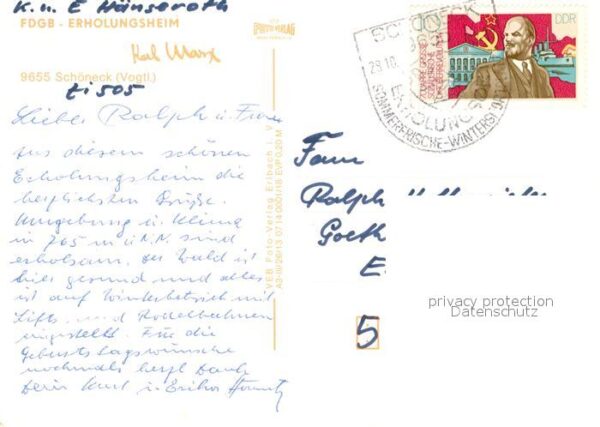 K. u. E Hänseroth
FDGB - ERHOLUNGSHEIM
Karl Marx
9655 Schöneck (Vogtl.)
505
Lieber Ralph u. Frau
Aus diesem schönen
Erholungsheim die
herzlichsten Grüße.
Umgebung u. Klima
in 765 m ü. N.N. sind
erholsam. Der Wald ist
hier gesund und alles
ist auf Winterbetrieb mit
Lifts und Rodelbahnen
eingestellt. Für die
Geburtstagswünsche
nochmals herzl Dank
Kurt u. Erika
VEB Foto-Verlag Erlbach i. V.
EVP 0,20 M
SCHÖNECK
29.10.
ERHOLUNGSORT
SOMMERFRISCHE-WINTERSPORT
DDR
Frau
Ralph
Goeth
E
5
privacy protection
Datenschutz